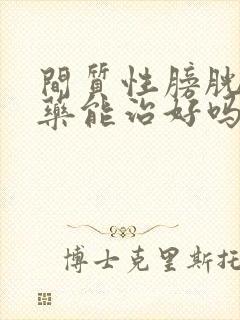 間質性膀胱
藥能治好嗎
博士克里斯托